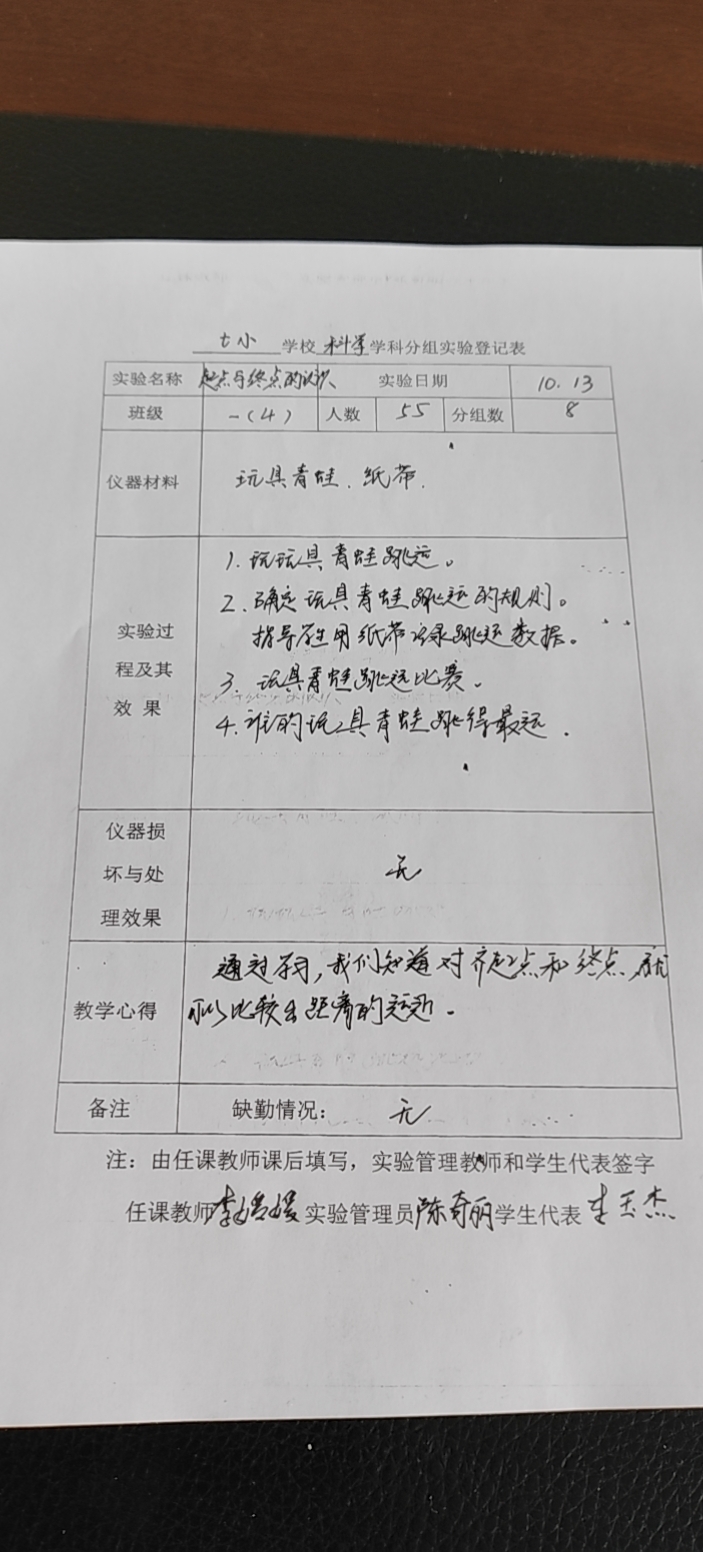 七小 学校 科学 学科分组实验登记表
实验名称 起点与终点的认识 实验日期 10.13
班级 一(4) 人数 55 分组数 8
仪器材料 玩具青蛙、纸带.
实验过
程及其
效 果
1. 玩玩具青蛙跳远。
2. 确定玩具青蛙跳远的规则。
指导学生用纸带记录跳远数据。
3. 玩具青蛙跳远比赛。
4. 谁的玩具青蛙跳得最远.
仪器损
坏与处
理效果
无
教学心得
通过学习,我们知道对齐起点和终点,就
可以比较出距离的远近。
备注 缺勤情况: 无
注:由任课教师课后填写,实验管理教师和学生代表签字
任课教师 李 实验管理员 陈奇丽 学生代表 玉杰